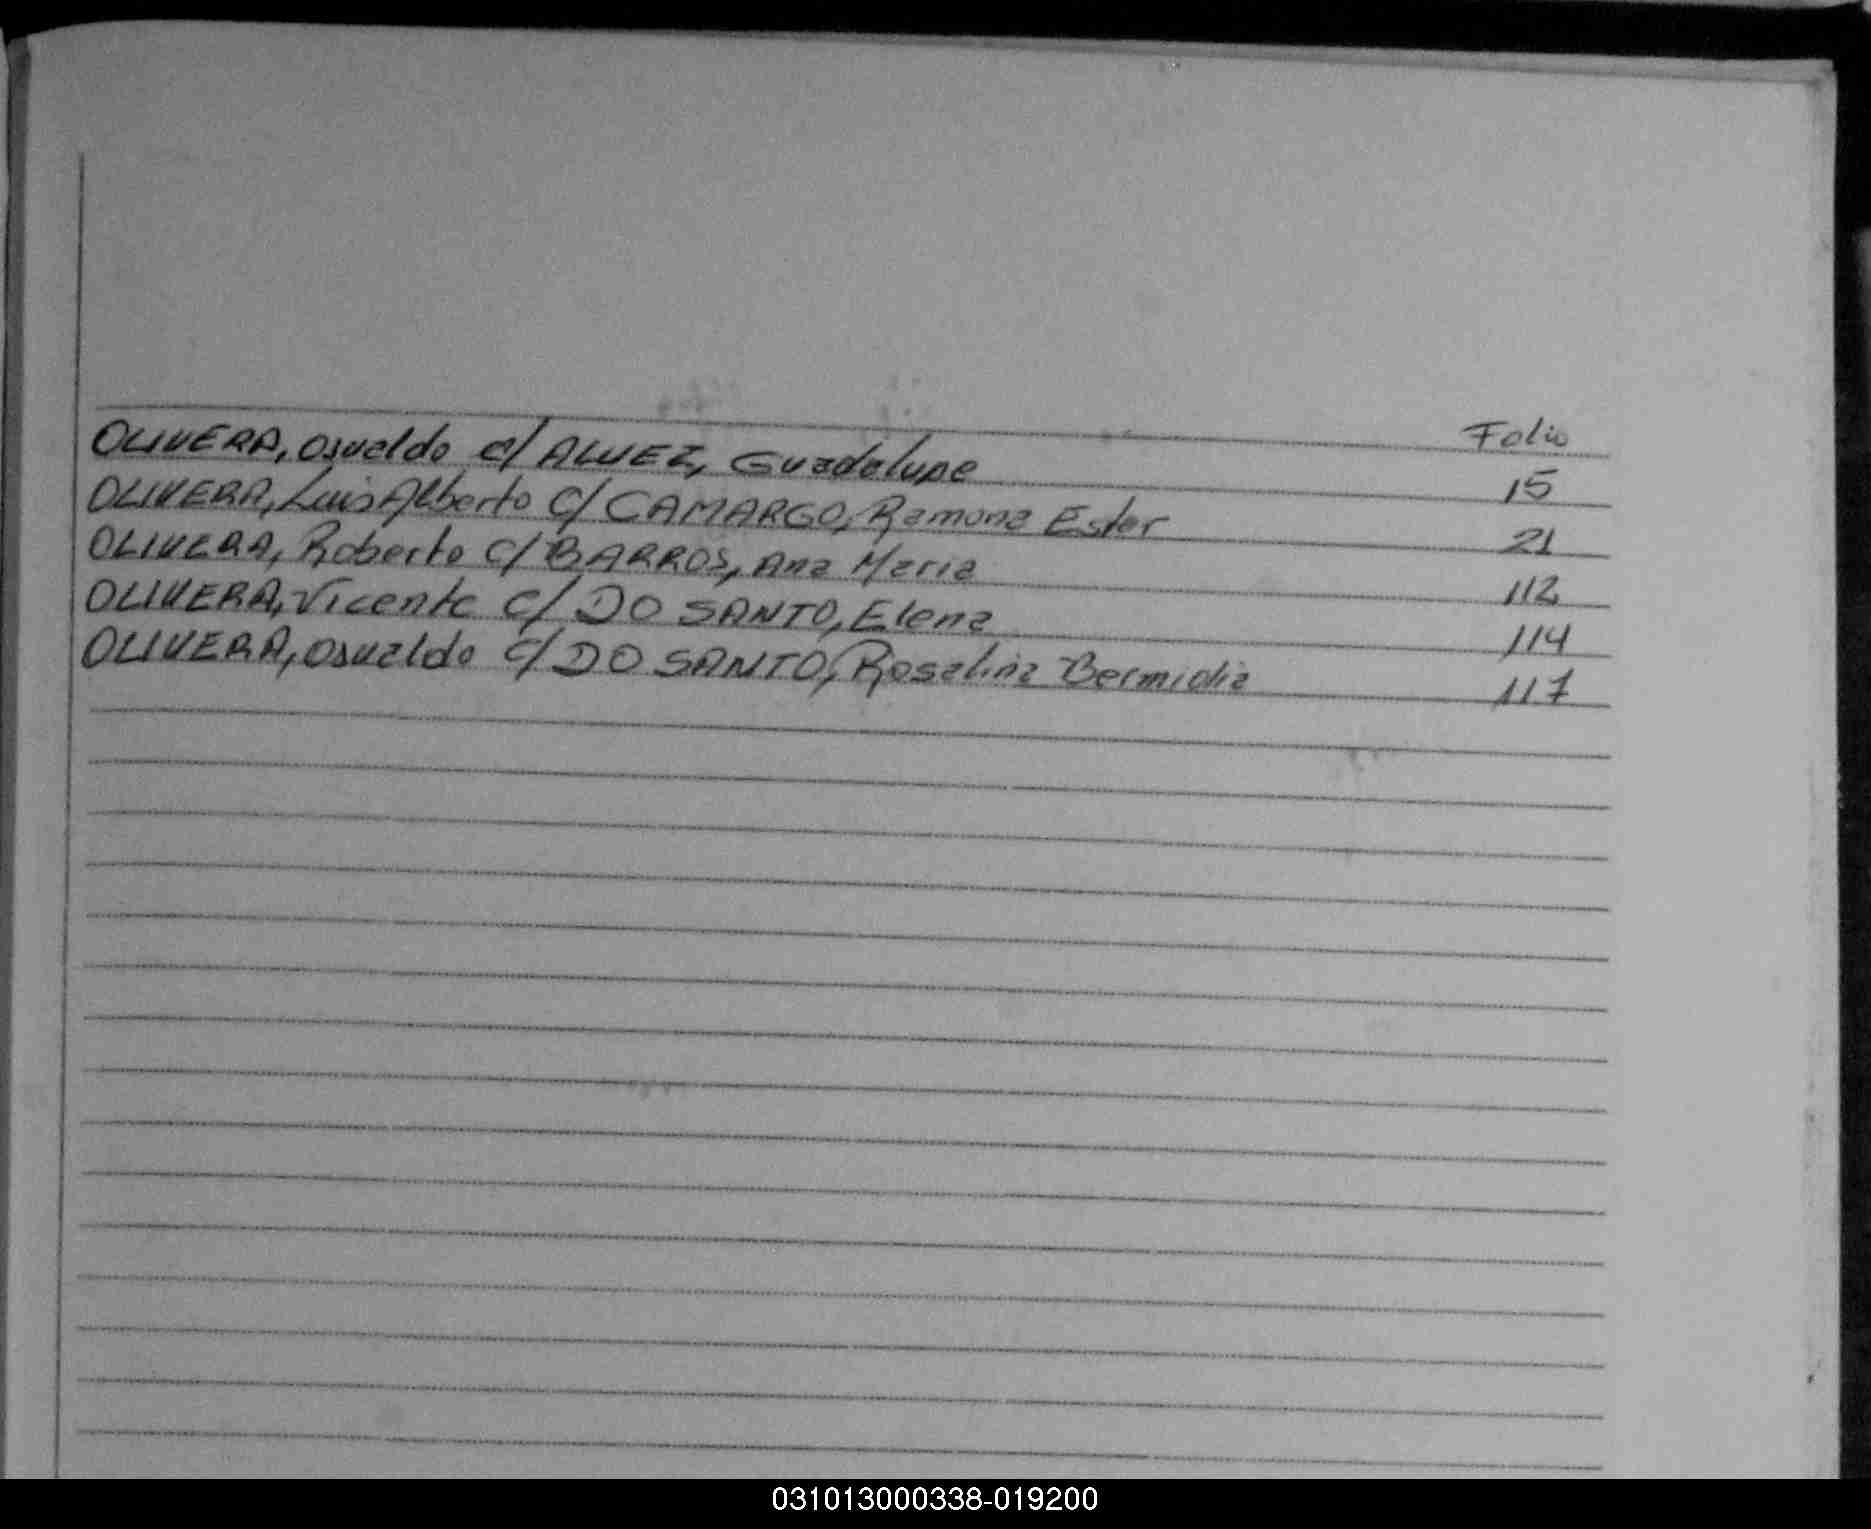 Folio
OLIVERA, Osvaldo c/ ALVEZ, Guadalupe 15
OLIVERA, Luis Alberto c/ CAMARGO, Ramona Ester 21
OLIVERA, Roberto c/ BARROS, Ana Maria 112
OLIVERA, Vicente c/ DO SANTO, Elena 114
OLIVERA, Osvaldo c/ DO SANTO, Rosalina Bermidia 117
031013000338-019200